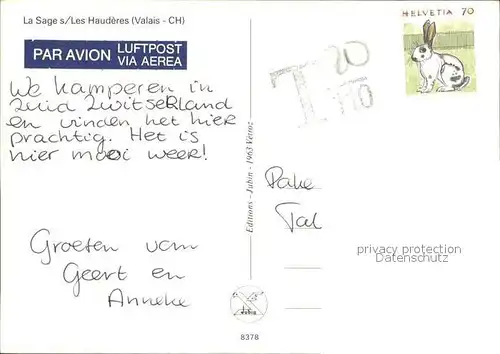 La Sage s/Les Haudères (Valais - CH)
PAR AVION LUFTPOST
VIA AEREA
HELVETIA 70
T 20
170
We kamperen in
Zuid Zwitserland
en vinden het hier
prachtig. Het is
hier mooi weer!
Groeten van
Geert en
Anneke
Editions - Jubin - 1963 Vétroz
Pake
Tal
privacy protection
Datenschutz
8378